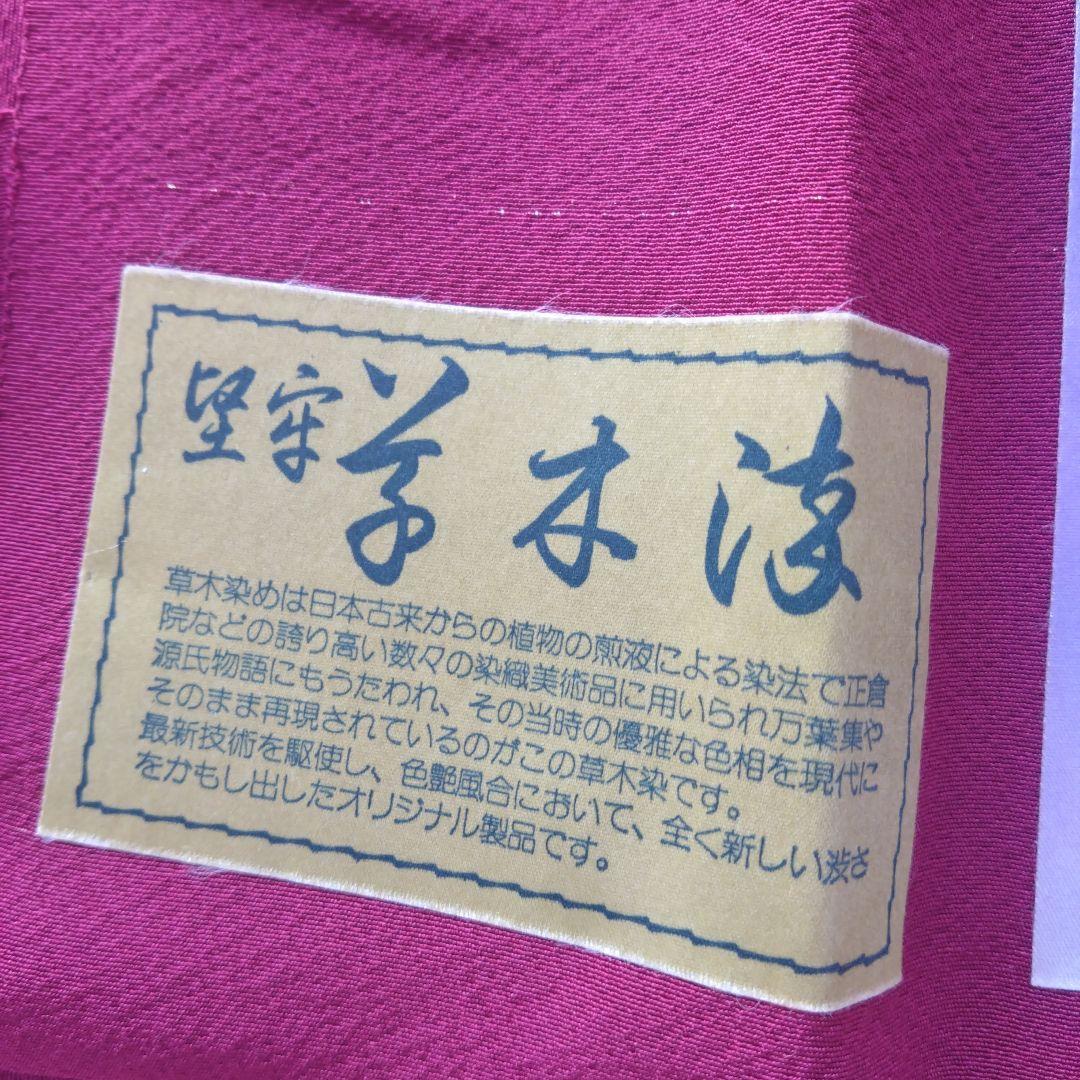 堅牢草木染
草木染めは日本古来からの植物の煎液による染法で正倉
院などの誇り高い数々の染織美術品に用いられ万葉集や
源氏物語にもうたわれ、その当時の優雅な色相を現代に
そのまま再現されているのがこの草木染です。
最新技術を駆使し、色艶風合において、全く新しい渋さ
をかもし出したオリジナル製品です。